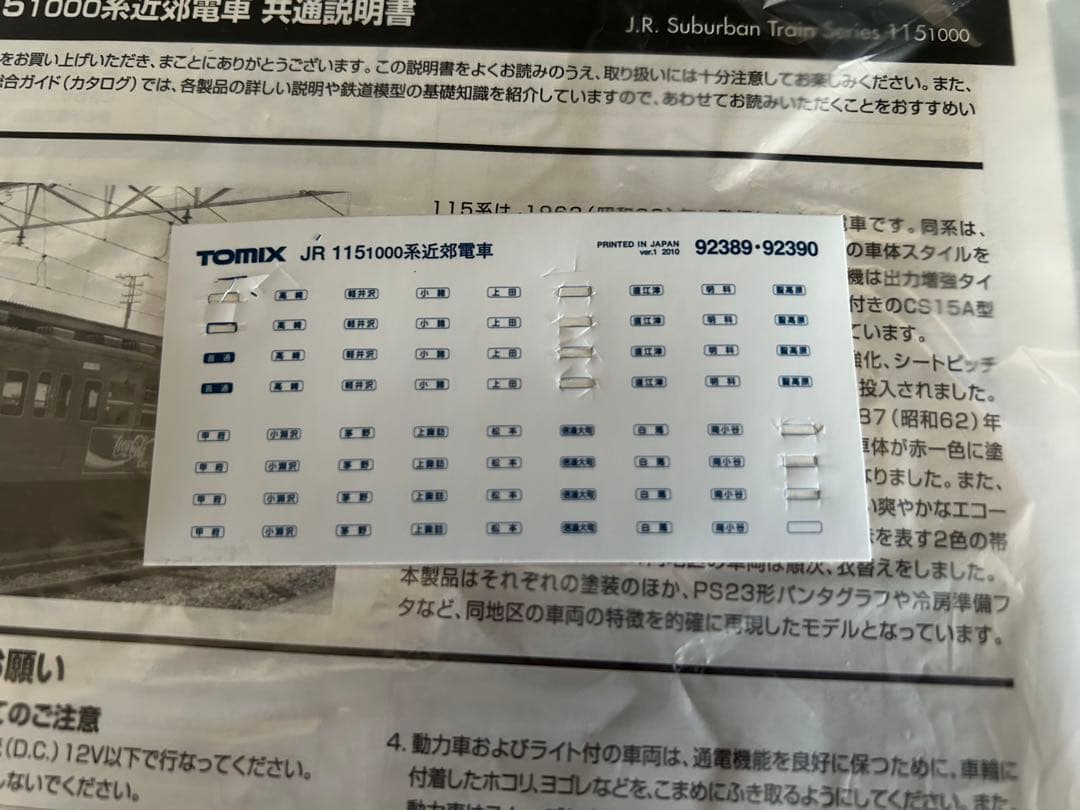 51000系近郊電車 共通説明書
J.R. Suburban Train Series 1151000
をお買い上げいただき、まことにありがとうございます。この説明書をよくお読みのうえ、取り扱いには十分注意してお楽しみください。また、
総合ガイド(カタログ)では、各製品の詳しい説明や鉄道模型の基礎知識を紹介していますので、あわせてお読みいただくことをおすすめい
115系は、1963(昭和38)
車です。同系は、
の車体スタイルを
機は出力増強タイ
付きのCS15A型
ています。
強化、シートピッチ
投入されました。
87(昭和62)年
車体が赤一色に塗
なりました。また、
い爽やかなエコー
を表す2色の帯
の車両は順次、衣替えをしました。
本製品はそれぞれの塗装のほか、PS23形パンタグラフや冷房準備フ
タなど、同地区の車両の特徴を的確に再現したモデルとなっています。
TOMIX JR 1151000系近郊電車 PRINTED IN JAPAN ver.1 2010 92389・92390
高崎 軽井沢 小諸 上田 直江津 明科 聖高原
高崎 軽井沢 小諸 上田 直江津 明科 聖高原
普通 高崎 軽井沢 小諸 上田 直江津 明科 聖高原
普通 高崎 軽井沢 小諸 上田 直江津 明科 聖高原
甲府 小淵沢 茅野 上諏訪 松本 信濃大町 白馬 南小谷
甲府 小淵沢 茅野 上諏訪 松本 信濃大町 白馬 南小谷
甲府 小淵沢 茅野 上諏訪 松本 信濃大町 白馬 南小谷
甲府 小淵沢 茅野 上諏訪 松本 信濃大町 白馬 南小谷
お願い
てのご注意
(D.C.)12V以下で行なってください。
しないでください。
4. 動力車およびライト付の車両は、通電機能を良好に保つために、車輪に
付着したホコリ、ヨゴレなどを、こまめにふき取るようにしてください。また